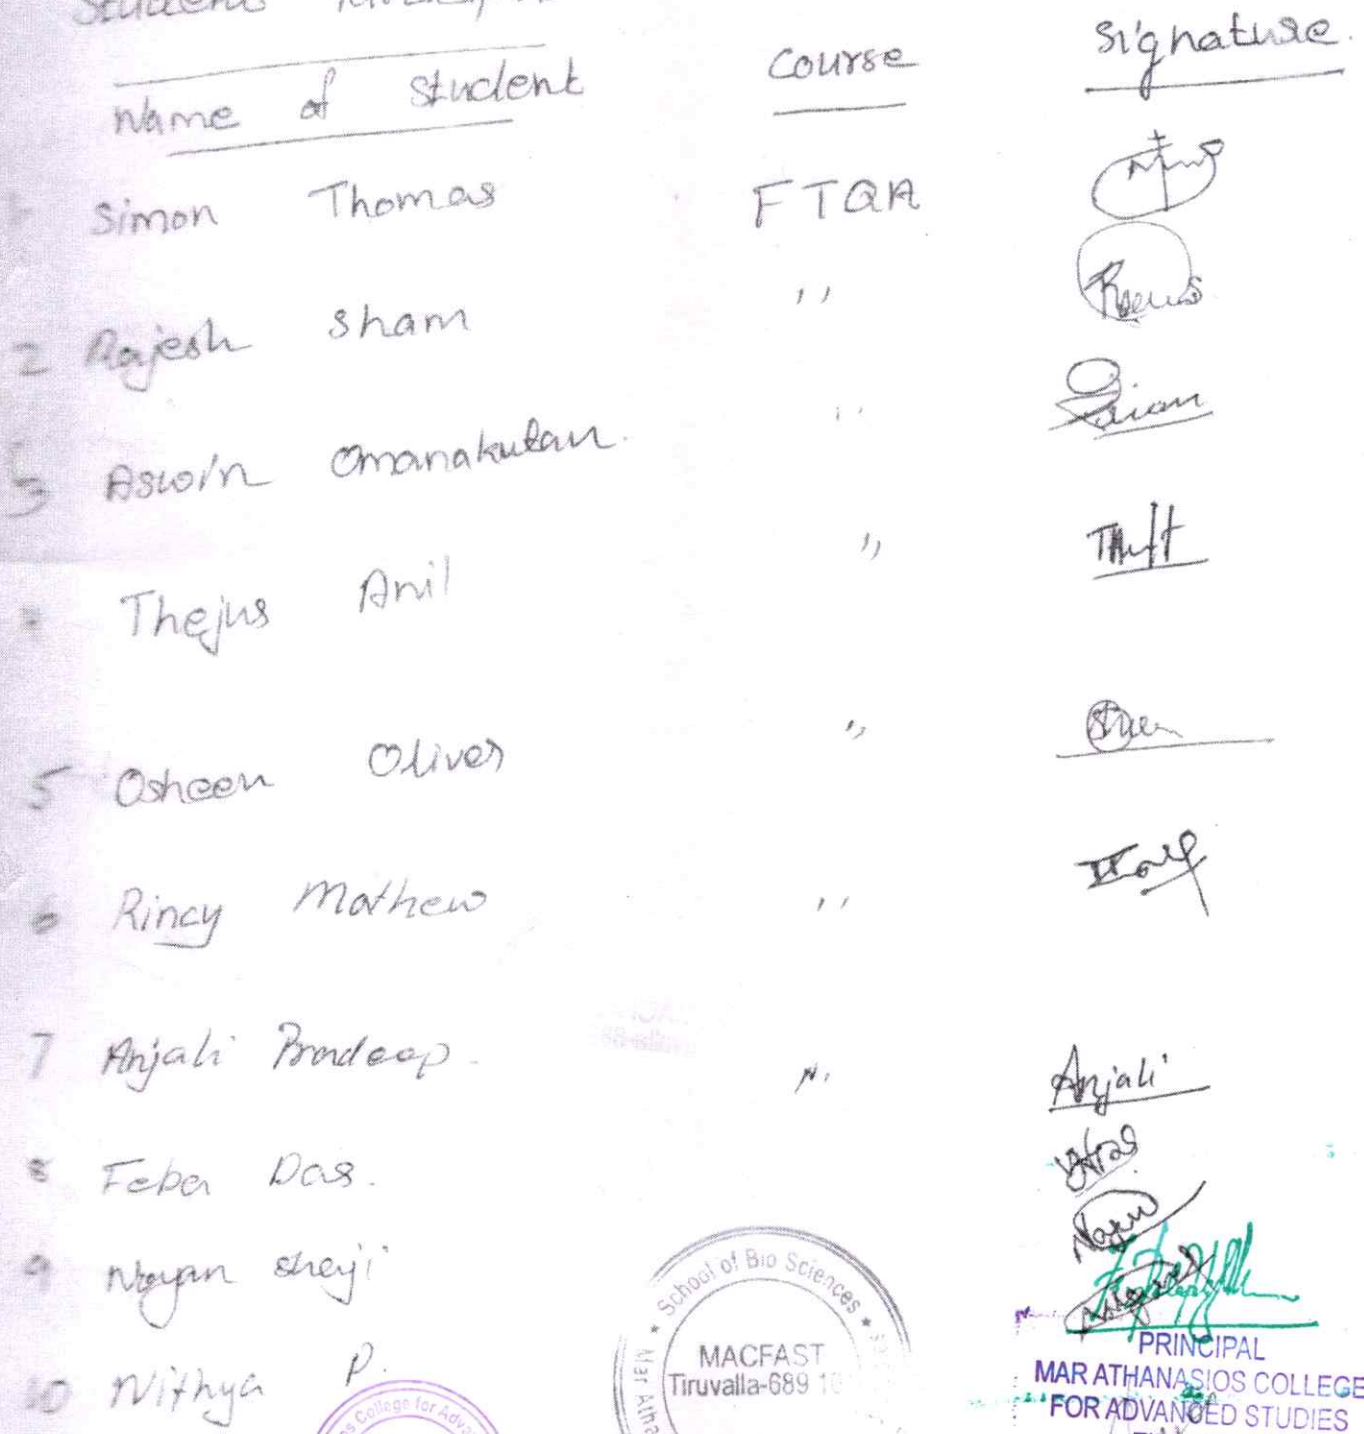 Student
Name of Student Course Signature.
Simon Thomas FTQA
2 Rajesh Sham ,,
3 Aswin Omanakutan. ,,
Thejus Anil ,,
5 Osheen Oliver ,,
6 Rincy Mathew ,,
7 Anjali Pradeep. ,, Anjali
8 Feba Das.
9 Nayan Sheji
10 Nithya P.
School of Bio Sciences
MACFAST
Tiruvalla-689 10
Mar Atha
College for Adva
PRINCIPAL
MAR ATHANASIOS COLLEGE
FOR ADVANCED STUDIES